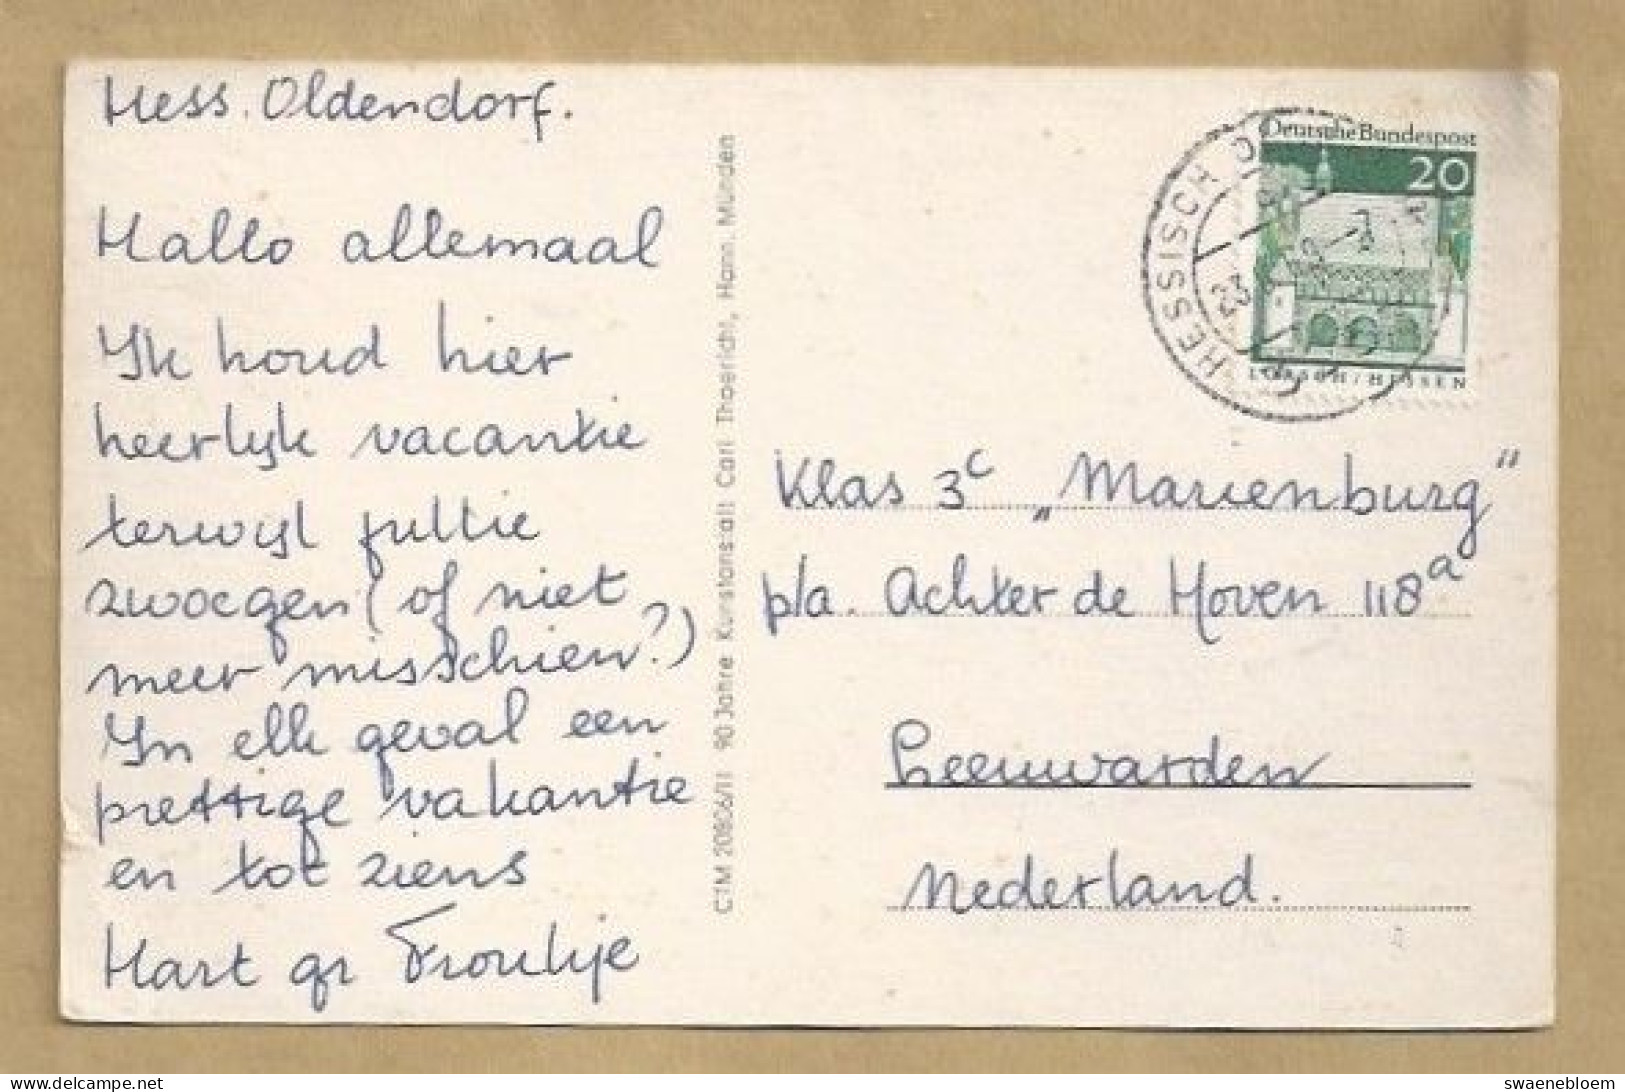 Hess. Oldendorf.
Hallo allemaal
Ik houd hier
heerlijk vacantie
terwijl jullie
zwoegen (of niet
meer misschien?)
In elk geval een
prettige vakantie
en tot ziens
Hart gr Froukje
CTM 20806/11 90 Jahre Kunstanstalt Carl Thoericht, Hann. Münden
Deutsche Bundespost
20
LORSCH / HESSEN
HESSISCH O
23
Klas 3c „Marienburg"
p/a. Achter de Hoven 118a
Leeuwarden
Nederland.
swaenebloem